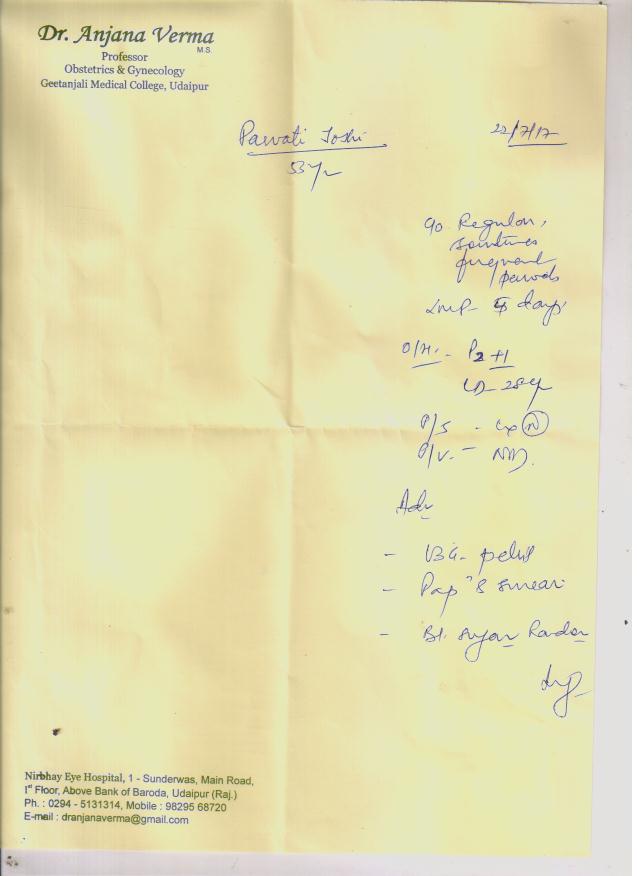 Dr. Anjana Verma
M.S.
Professor
Obstetrics & Gynecology
Geetanjali Medical College, Udaipur
Parvati Joshi
22/7/17
53 yr
c/o. Regular,
sometimes
frequent
periods
LMP - 5 days
O/H. - P2+1
LD - 28 yr
P/S - Cx N
P/V. - NAD.
Adv
- USG - pelvis
- Pap's smear
- Bl. sugar Random
Nirbhay Eye Hospital, 1 - Sunderwas, Main Road,
1st Floor, Above Bank of Baroda, Udaipur (Raj.)
Ph. : 0294 - 5131314, Mobile : 98295 68720
E-mail : dranjanaverma@gmail.com